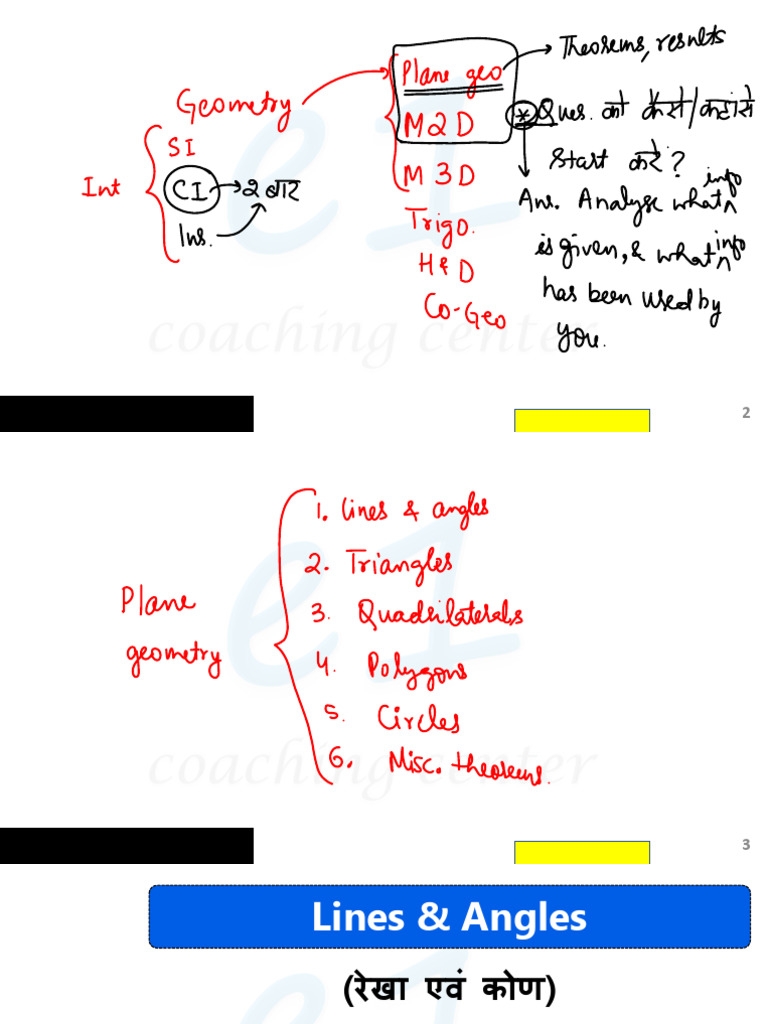 Geometry
Plane geo
M2D
M 3D
Trigo.
H & D
Co-Geo
Theorems, results
* Ques. को कैसे/कहांसे
Start करें?
Ans. Analyse what info
is given, & what info
has been used by
you.
Int
SI
CI → 2 बार
Ins.
e1
coaching center
2
Plane
geometry
1. Lines & angles
2. Triangles
3. Quadrilaterals
4. Polygons
5. Circles
6. Misc. theorems.
e1
coaching center
3
Lines & Angles
(रेखा एवं कोण)